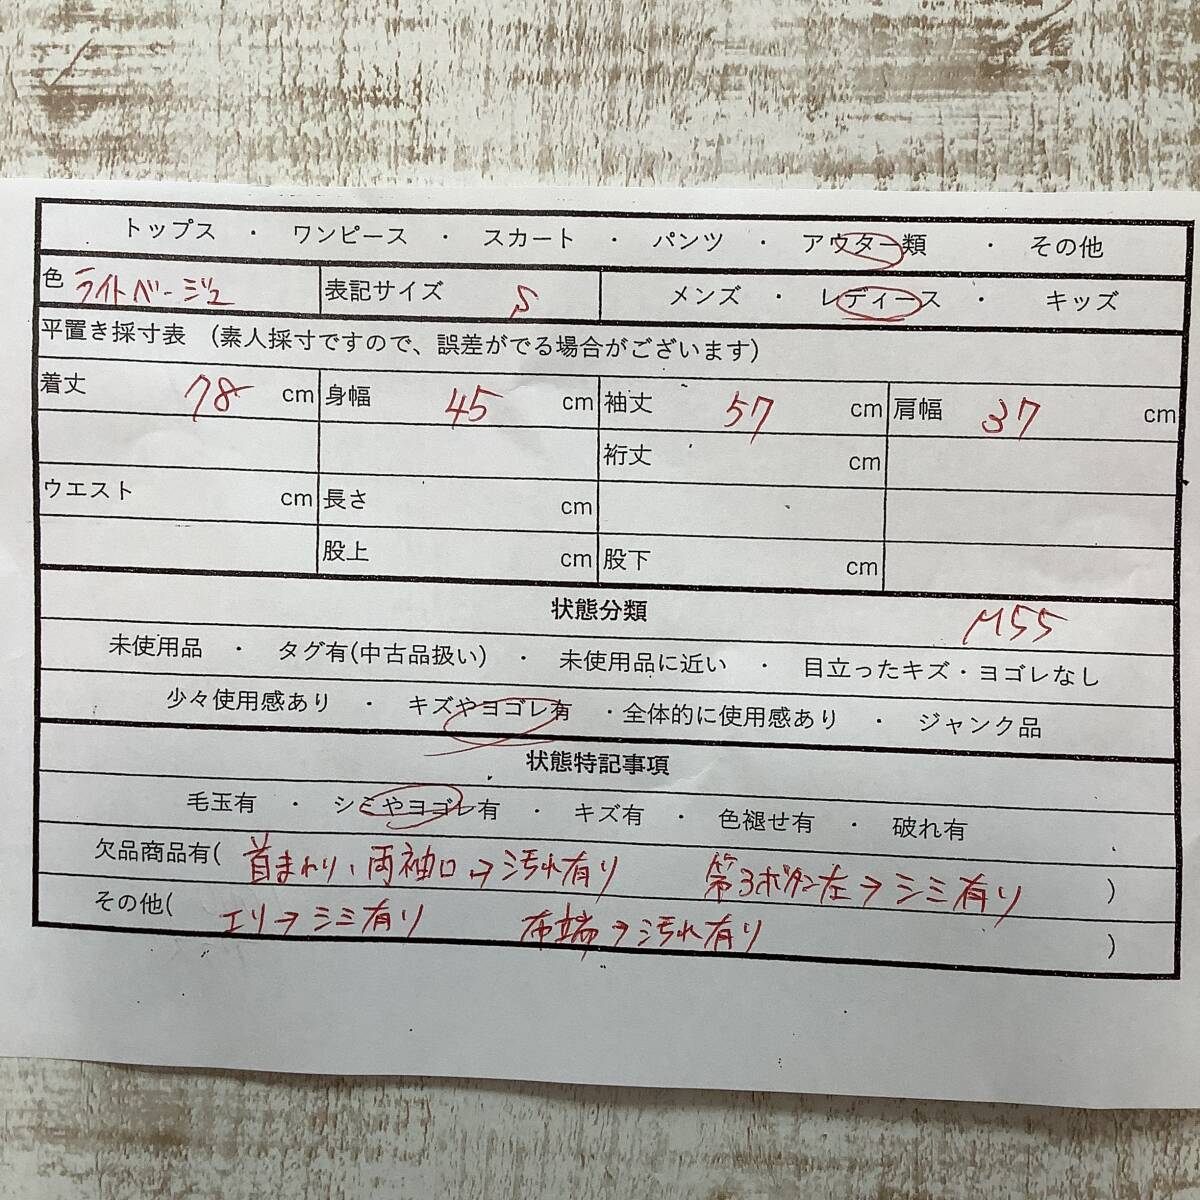 トップス ・ ワンピース ・ スカート ・ パンツ ・ アウター類 ・ その他
色 ライトベージュ 表記サイズ S メンズ ・ レディース ・ キッズ
平置き採寸表 (素人採寸ですので、誤差がでる場合がございます)
着丈 78 cm 身幅 45 cm 袖丈 57 cm 肩幅 37 cm
裄丈 cm
ウエスト cm 長さ cm
股上 cm 股下 cm
状態分類 M55
未使用品 ・ タグ有(中古品扱い) ・ 未使用品に近い ・ 目立ったキズ・ヨゴレなし
少々使用感あり ・ キズやヨゴレ有 ・全体的に使用感あり ・ ジャンク品
状態特記事項
毛玉有 ・ シミやヨゴレ有 ・ キズ有 ・ 色褪せ有 ・ 破れ有
欠品商品有( 首まわり、両袖口→汚れ有り 第3ボタン左→シミ有り )
その他( エリ→シミ有り 布端→汚れ有り )